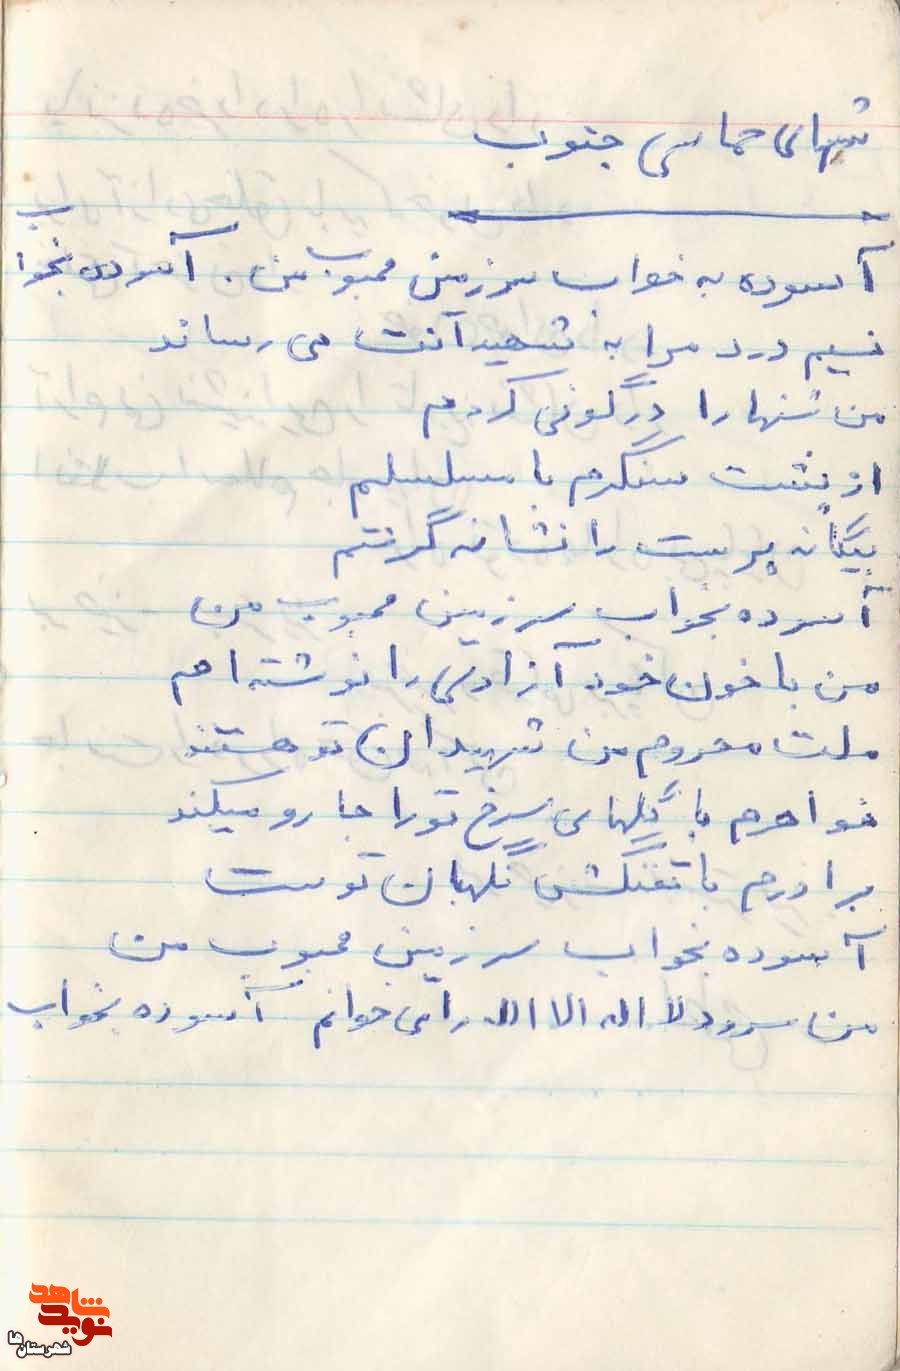 شبهای حماسی جنوب
آسوده به خواب سرزمین محبوب من. آسوده بخواب
نسیم درد مرا به شهیدانت می رساند
من تنها را درگونی کردم
از پشت سنگرم با مسلسلم
بیگانه پرست را نشانه گرفتم
آسوده بخواب سرزمین محبوب من
من با خون خود آزادی را نوشته ام
ملت محروم من شهیدان تو هستند
خواهرم با گلهای سرخ تو را جارو میکند
برادرم با تفنگش نگهبان توست
آسوده بخواب سرزمین محبوب من
من سرود لا اله الا الله را می خوانم آسوده بخواب
نوید شاهد
شهرستان ها